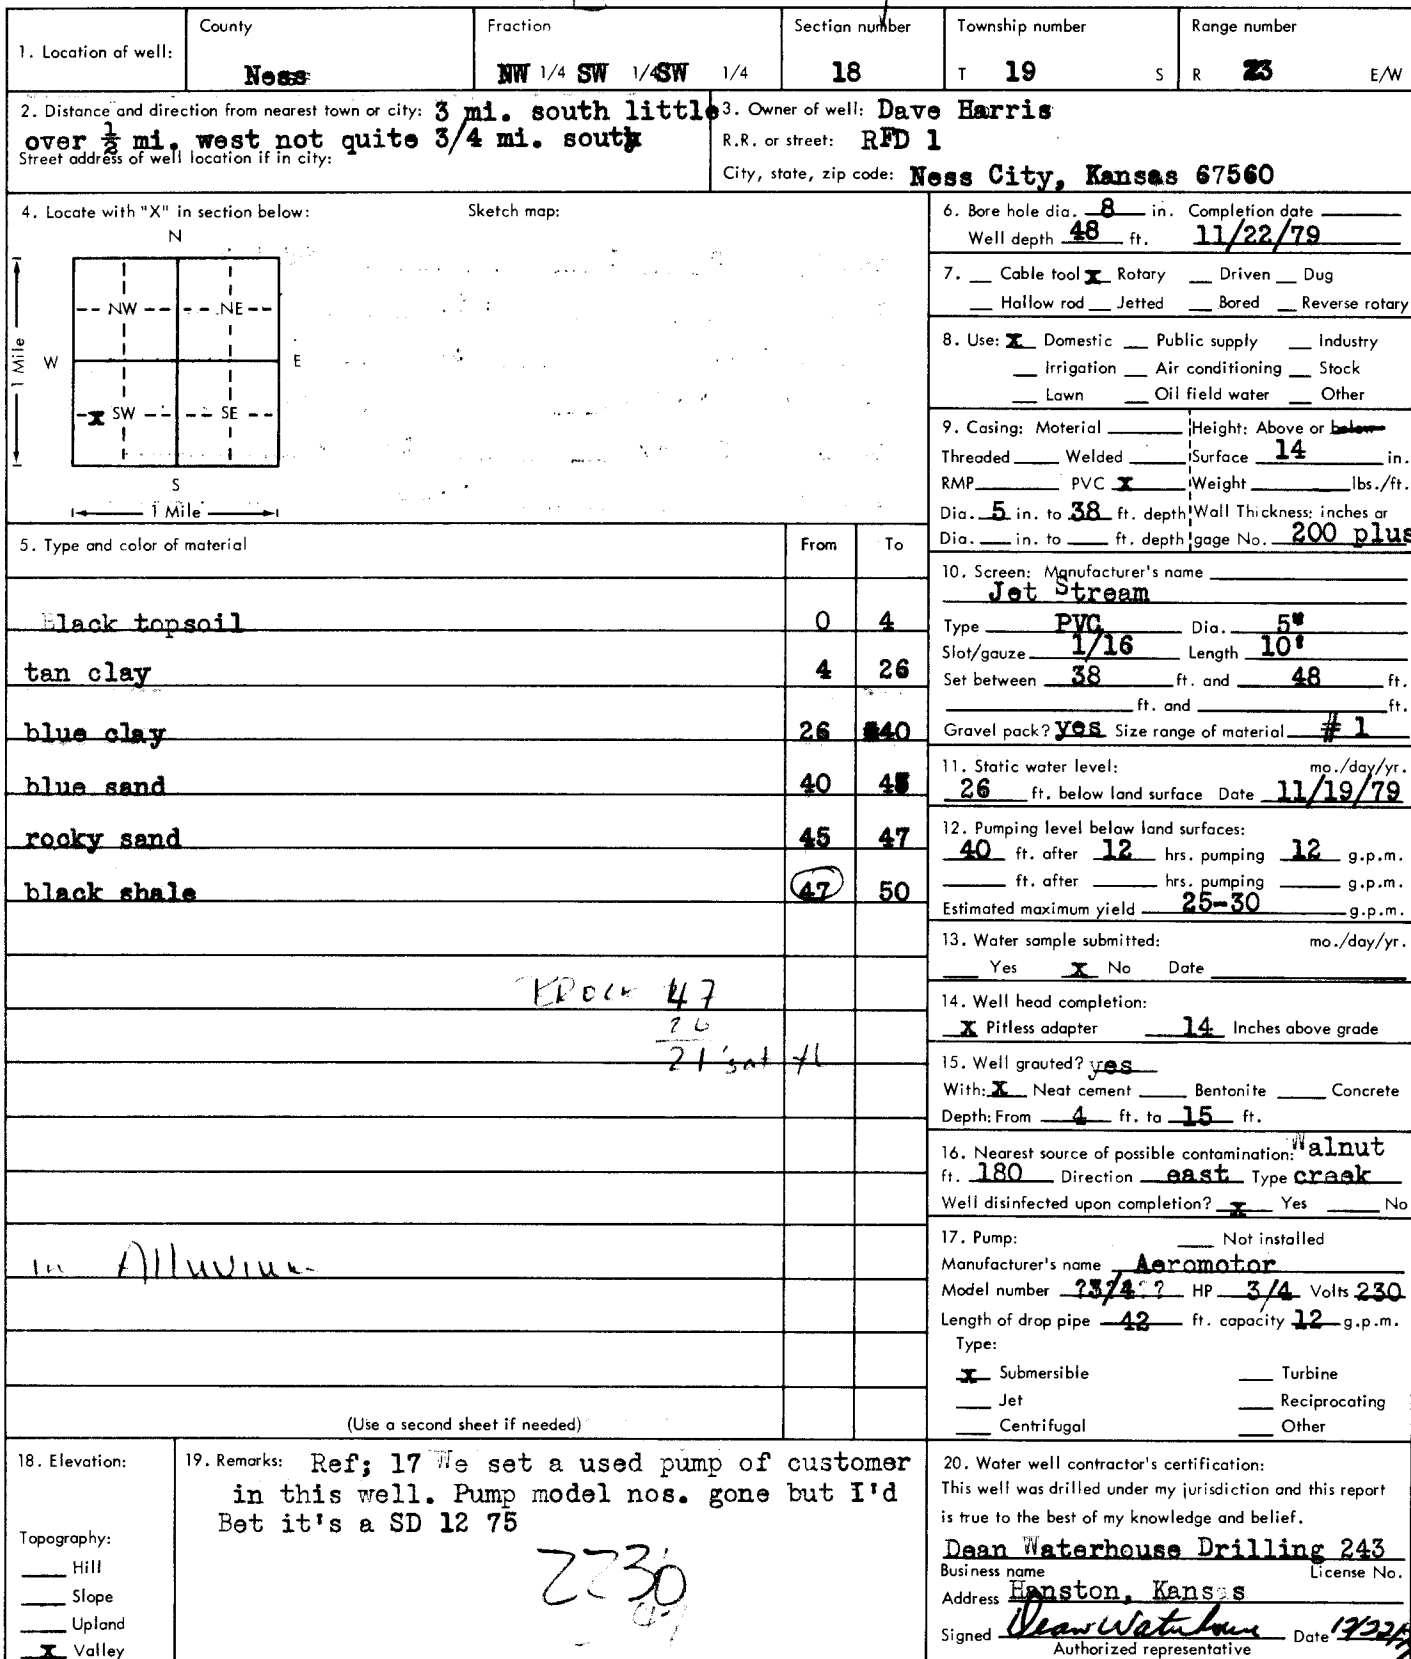 1. Location of well:
County
Ness
Fraction
NW 1/4 SW 1/4 SW 1/4
Section number
18
Township number
T 19 S
Range number
R 23 E/W
2. Distance and direction from nearest town or city: 3 mi. south little
over ½ mi. west not quite 3/4 mi. south
Street address of well location if in city:
3. Owner of well: Dave Harris
R.R. or street: RFD 1
City, state, zip code: Ness City, Kansas 67560
4. Locate with "X" in section below:
Sketch map:
N
NW NE
W E
1 Mile
X SW SE
S
1 Mile
5. Type and color of material From To
Black topsoil 0 4
tan clay 4 26
blue clay 26 40
blue sand 40 45
rocky sand 45 47
black shale 47 50
47
26
21' sat
in Alluvium
(Use a second sheet if needed)
6. Bore hole dia. 8 in. Completion date
Well depth 48 ft. 11/22/79
7. Cable tool X Rotary Driven Dug
Hollow rod Jetted Bored Reverse rotary
8. Use: X Domestic Public supply Industry
Irrigation Air conditioning Stock
Lawn Oil field water Other
9. Casing: Material Height: Above or below
Threaded Welded Surface 14 in.
RMP PVC X Weight lbs./ft.
Dia. 5 in. to 38 ft. depth Wall Thickness: inches or
Dia. in. to ft. depth gage No. 200 plus
10. Screen: Manufacturer's name
Jet Stream
Type PVC Dia. 5"
Slot/gauze 1/16 Length 10'
Set between 38 ft. and 48 ft.
ft. and ft.
Gravel pack? yes Size range of material # 1
11. Static water level: mo./day/yr.
26 ft. below land surface Date 11/19/79
12. Pumping level below land surfaces:
40 ft. after 12 hrs. pumping 12 g.p.m.
ft. after hrs. pumping g.p.m.
Estimated maximum yield 25-30 g.p.m.
13. Water sample submitted: mo./day/yr.
Yes X No Date
14. Well head completion:
X Pitless adapter 14 Inches above grade
15. Well grouted? yes
With: X Neat cement Bentonite Concrete
Depth: From 4 ft. to 15 ft.
16. Nearest source of possible contamination: Walnut
ft. 180 Direction east Type creek
Well disinfected upon completion? X Yes No
17. Pump: Not installed
Manufacturer's name Aeromotor
Model number ?3/4?? HP 3/4 Volts 230
Length of drop pipe 42 ft. capacity 12 g.p.m.
Type:
X Submersible Turbine
Jet Reciprocating
Centrifugal Other
18. Elevation:
Topography:
Hill
Slope
Upland
X Valley
19. Remarks: Ref; 17 We set a used pump of customer
in this well. Pump model nos. gone but I'd
Bet it's a SD 12 75
2236
20. Water well contractor's certification:
This well was drilled under my jurisdiction and this report
is true to the best of my knowledge and belief.
Dean Waterhouse Drilling 243
Business name License No.
Address Hanston, Kansas
Signed Dean Waterhouse Date 12/22/79
Authorized representative